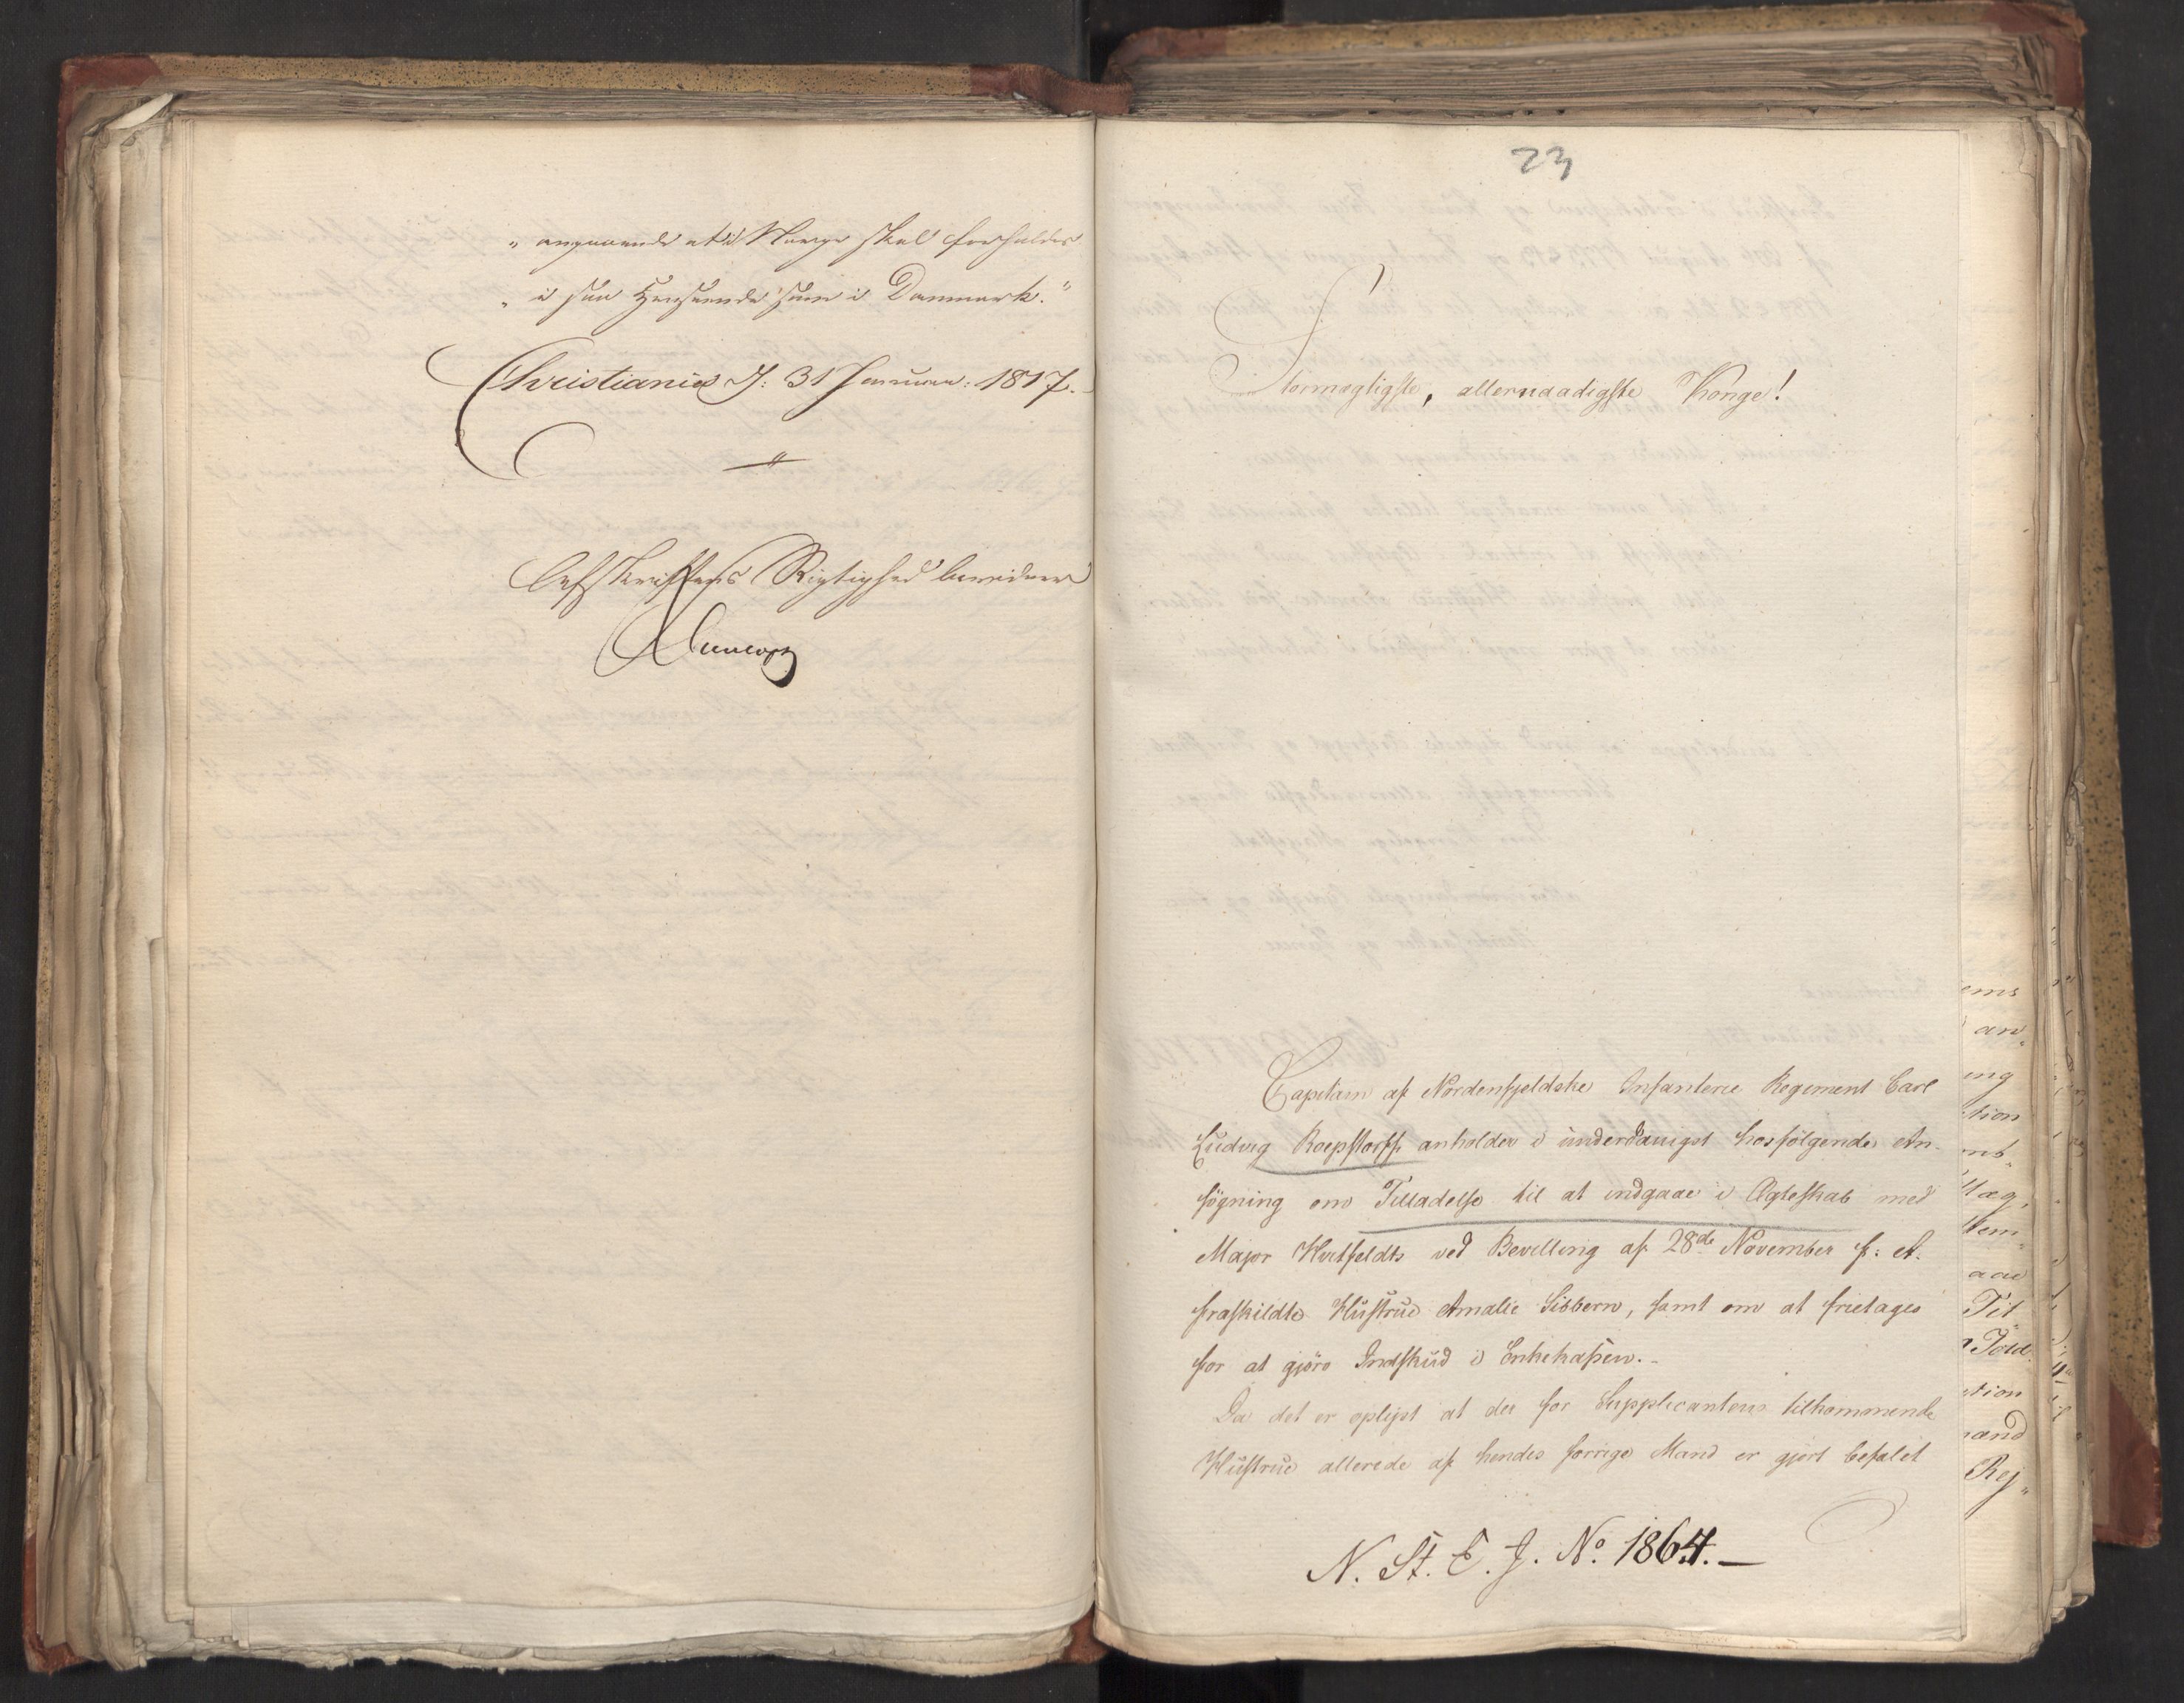 „ angaaende at i Norge skal forholdes
„ i saa Henseende som i Danmark."
Christiania d: 31 Januar: 1817.
Afskriftens Rigtighed bevidner
23
Stormægtigste, allernaadigste Konge!
Capitain af Nordenfjeldske Infanterie Regiment Carl
Ludvig Roepstorff anholder i underdanigst hosfölgende An-
sögning om Tilladelse til at indgaae i Ægteskab med
Major Hvitfeldts ved Bevilling af 28de November f: A.
fraskildte Hustrue Amalie Sibbern, samt om at frietages
for at gjöre Indskud i Enkekassen.-
Da det er oplyst at der for Supplicantens tilkommende
Hustrue allerede af hendes forrige Mand er gjort befalet
N. St. E. J. No. 1864.-
ems
an„
ing
tion
mb„
læg„
tem„
aae
Til„
Told
tion
and
Rej„